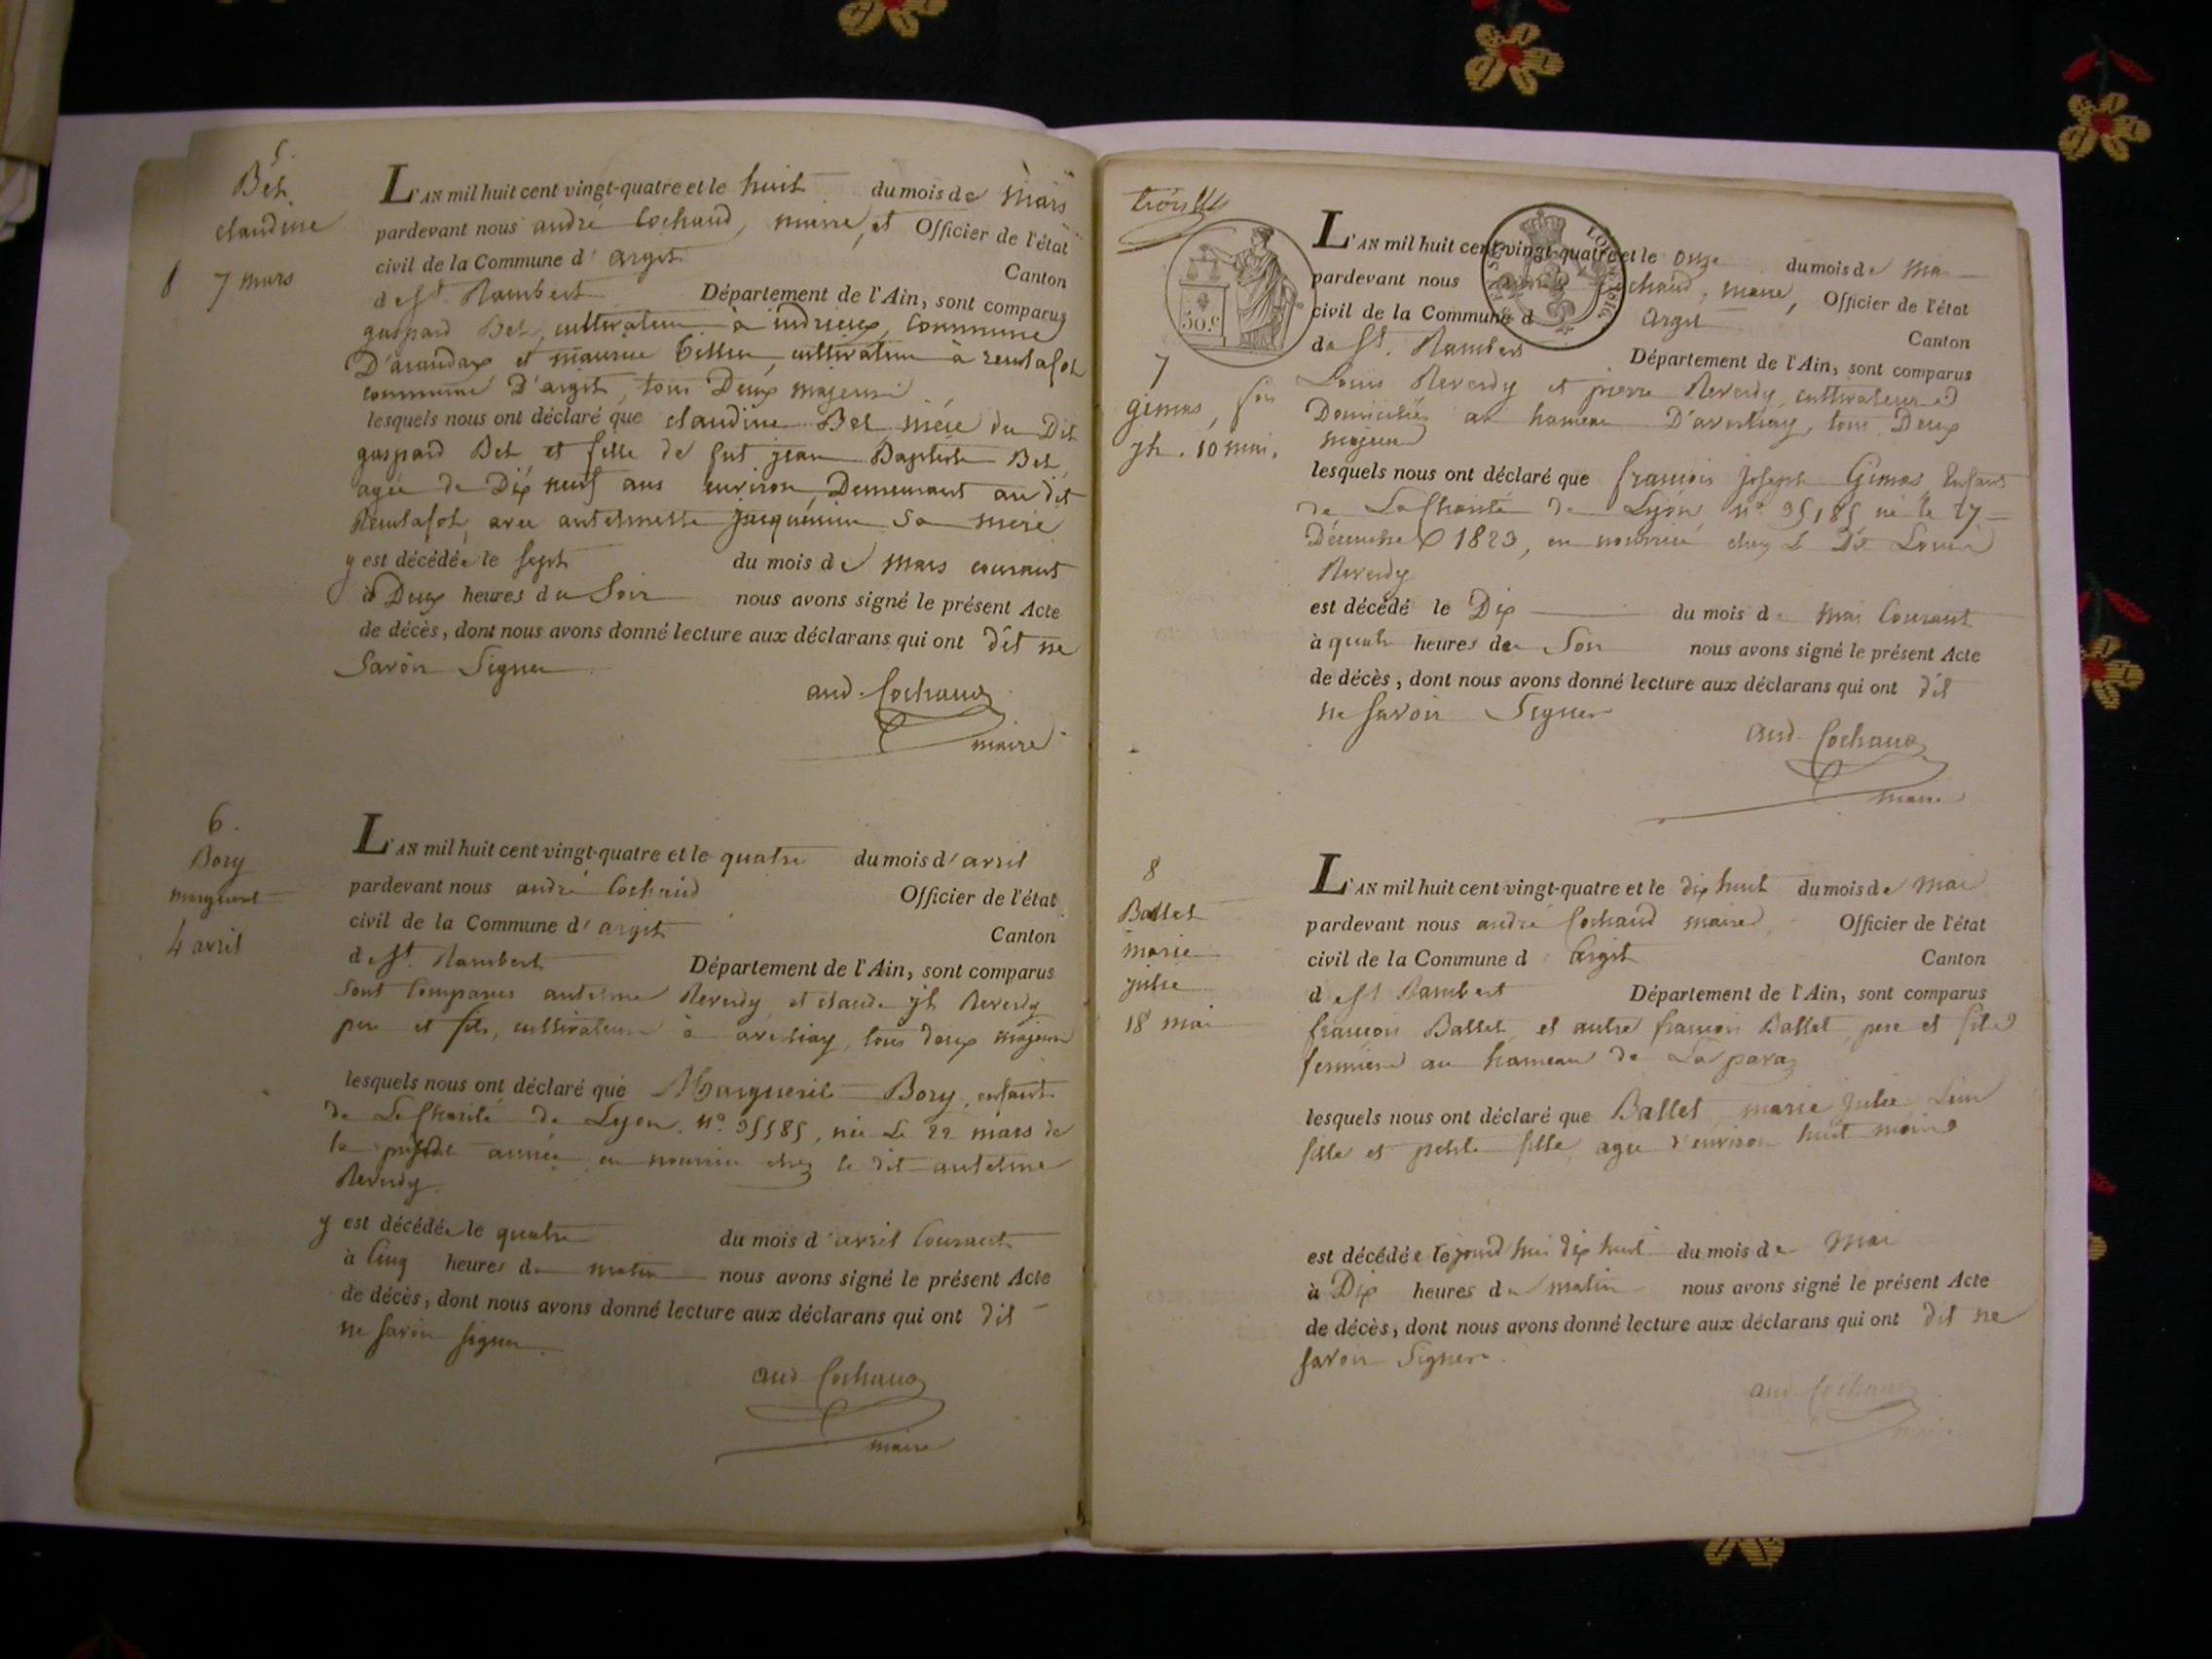 5
Bet
claudine
7 mars
L'AN mil huit cent vingt-quatre et le huit du mois de mars
pardevant nous andré Cochaud, maire, et Officier de l'état
civil de la Commune d'argit Canton
de St. Rambert Département de l'Ain, sont comparus
gaspard Bet, cultivateur à indrieux, Commune
D'arandax, et maurice cultivateur à reculafol
commune D'argit, tous Deux majeurs
lesquels nous ont déclaré que claudine Bet du Dit
gaspard Bet et fille de fut jean Baptiste Bet,
agée de Dix neuf ans environ, Demeurant au dit
Reculafol, avec antelmette jacquemin sa mere
y est décédée le sept du mois de mars courant
à Deux heures du Soir nous avons signé le présent Acte
de décès, dont nous avons donné lecture aux déclarans qui ont dit ne
Savoir Signer
and. Cochaud
maire
6.
Bory
marguerit
4 avril
L'AN mil huit cent vingt-quatre et le quatre du mois d'avril
pardevant nous andré Cochaud Officier de l'état
civil de la Commune d'argit Canton
de St. Rambert Département de l'Ain, sont comparus
sont Comparus antelme Reverdy et claude jh Reverdy
pere et fils, cultivateurs à averliay, tous deux majeurs
lesquels nous ont déclaré que Marguerite Bory, enfant
de La Charité de Lyon. n° 35585, née Le 22 mars de
la année en nourrice chez le dit antelme
Reverdy.
y est décédée le quatre du mois d'avril Courant
à Cinq heures du matin nous avons signé le présent Acte
de décès, dont nous avons donné lecture aux déclarans qui ont dit
ne Savoir signer.
and Cochaud
maire
trois
50 c
7
gimas, fois
jh. 10 mai.
L'AN mil huit cent vingt-quatre et le onze du mois de mai
pardevant nous chaud, maire, Officier de l'état
civil de la Commune d Argit Canton
de St. Rambert Département de l'Ain, sont comparus
Louis Reverdy et pierre Reverdy, cultivateurs
Domiciliés au hameau D'averliay, tous Deux
majeurs
lesquels nous ont déclaré que francois Joseph Gimas Enfant
de La Charité de Lyon n° 35185 né le 27
Décembre 1823, en nourrice chez Le Dit Louis
Reverdy
est décédé le Dix du mois de mai Courant
à quatre heures du Soir nous avons signé le présent Acte
de décès, dont nous avons donné lecture aux déclarans qui ont dit
ne Savoir Signer
and. Cochaud
maire
8
Ballet
marie
julie
18 mai
L'AN mil huit cent vingt-quatre et le dix huit du mois de mai
pardevant nous andré Cochaud maire, Officier de l'état
civil de la Commune d Argit Canton
de St Rambert Département de l'Ain, sont comparus
francois Ballet, et autre francois Ballet, pere et fils
fermiers au hameau de La paraz
lesquels nous ont déclaré que Ballet marie julie Leur
fille et petite fille, agée d'environ huit mois
est décédée le jourd'hui dix huit du mois de mai
à Dix heures du matin nous avons signé le présent Acte
de décès, dont nous avons donné lecture aux déclarans qui ont dit ne
savoir Signer.
and. Cochaud
maire